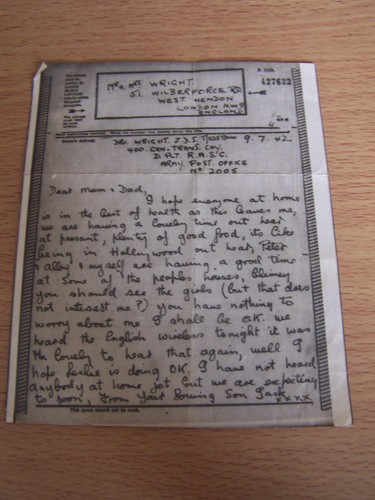 427622
Mr & Mrs WRIGHT.
51. WILBERFORCE RD
WEST HENDON
LONDON. N.W.9
ENGLAND
Sender's Address
DR. WRIGHT. J.D.S. 9.7.42
400. GEN. TRANS. COY.
D. PLT. R.A.S.C.
ARMY. POST. OFFICE
No 2005
Dear Mum & Dad,
I hope everyone at home
is in the best of health as this leaves me,
we are having a lovely time out hear
at present, plenty of good food, its like
being in Hollywood out hear, Peter
& Alley & myself are having a good time
at some of the peoples houses, Blimey
you should see the girls (but that does
not interest me?) you have nothing to
worry about me I shall be O.K. we
heard the English wireless tonight it was
lovely to hear that again, well I
hope Leslie is doing O.K. I have not heard
anybody at home yet but we are expecting
to soon From Your Loving Son Jack
x x x x
This space should not be used.